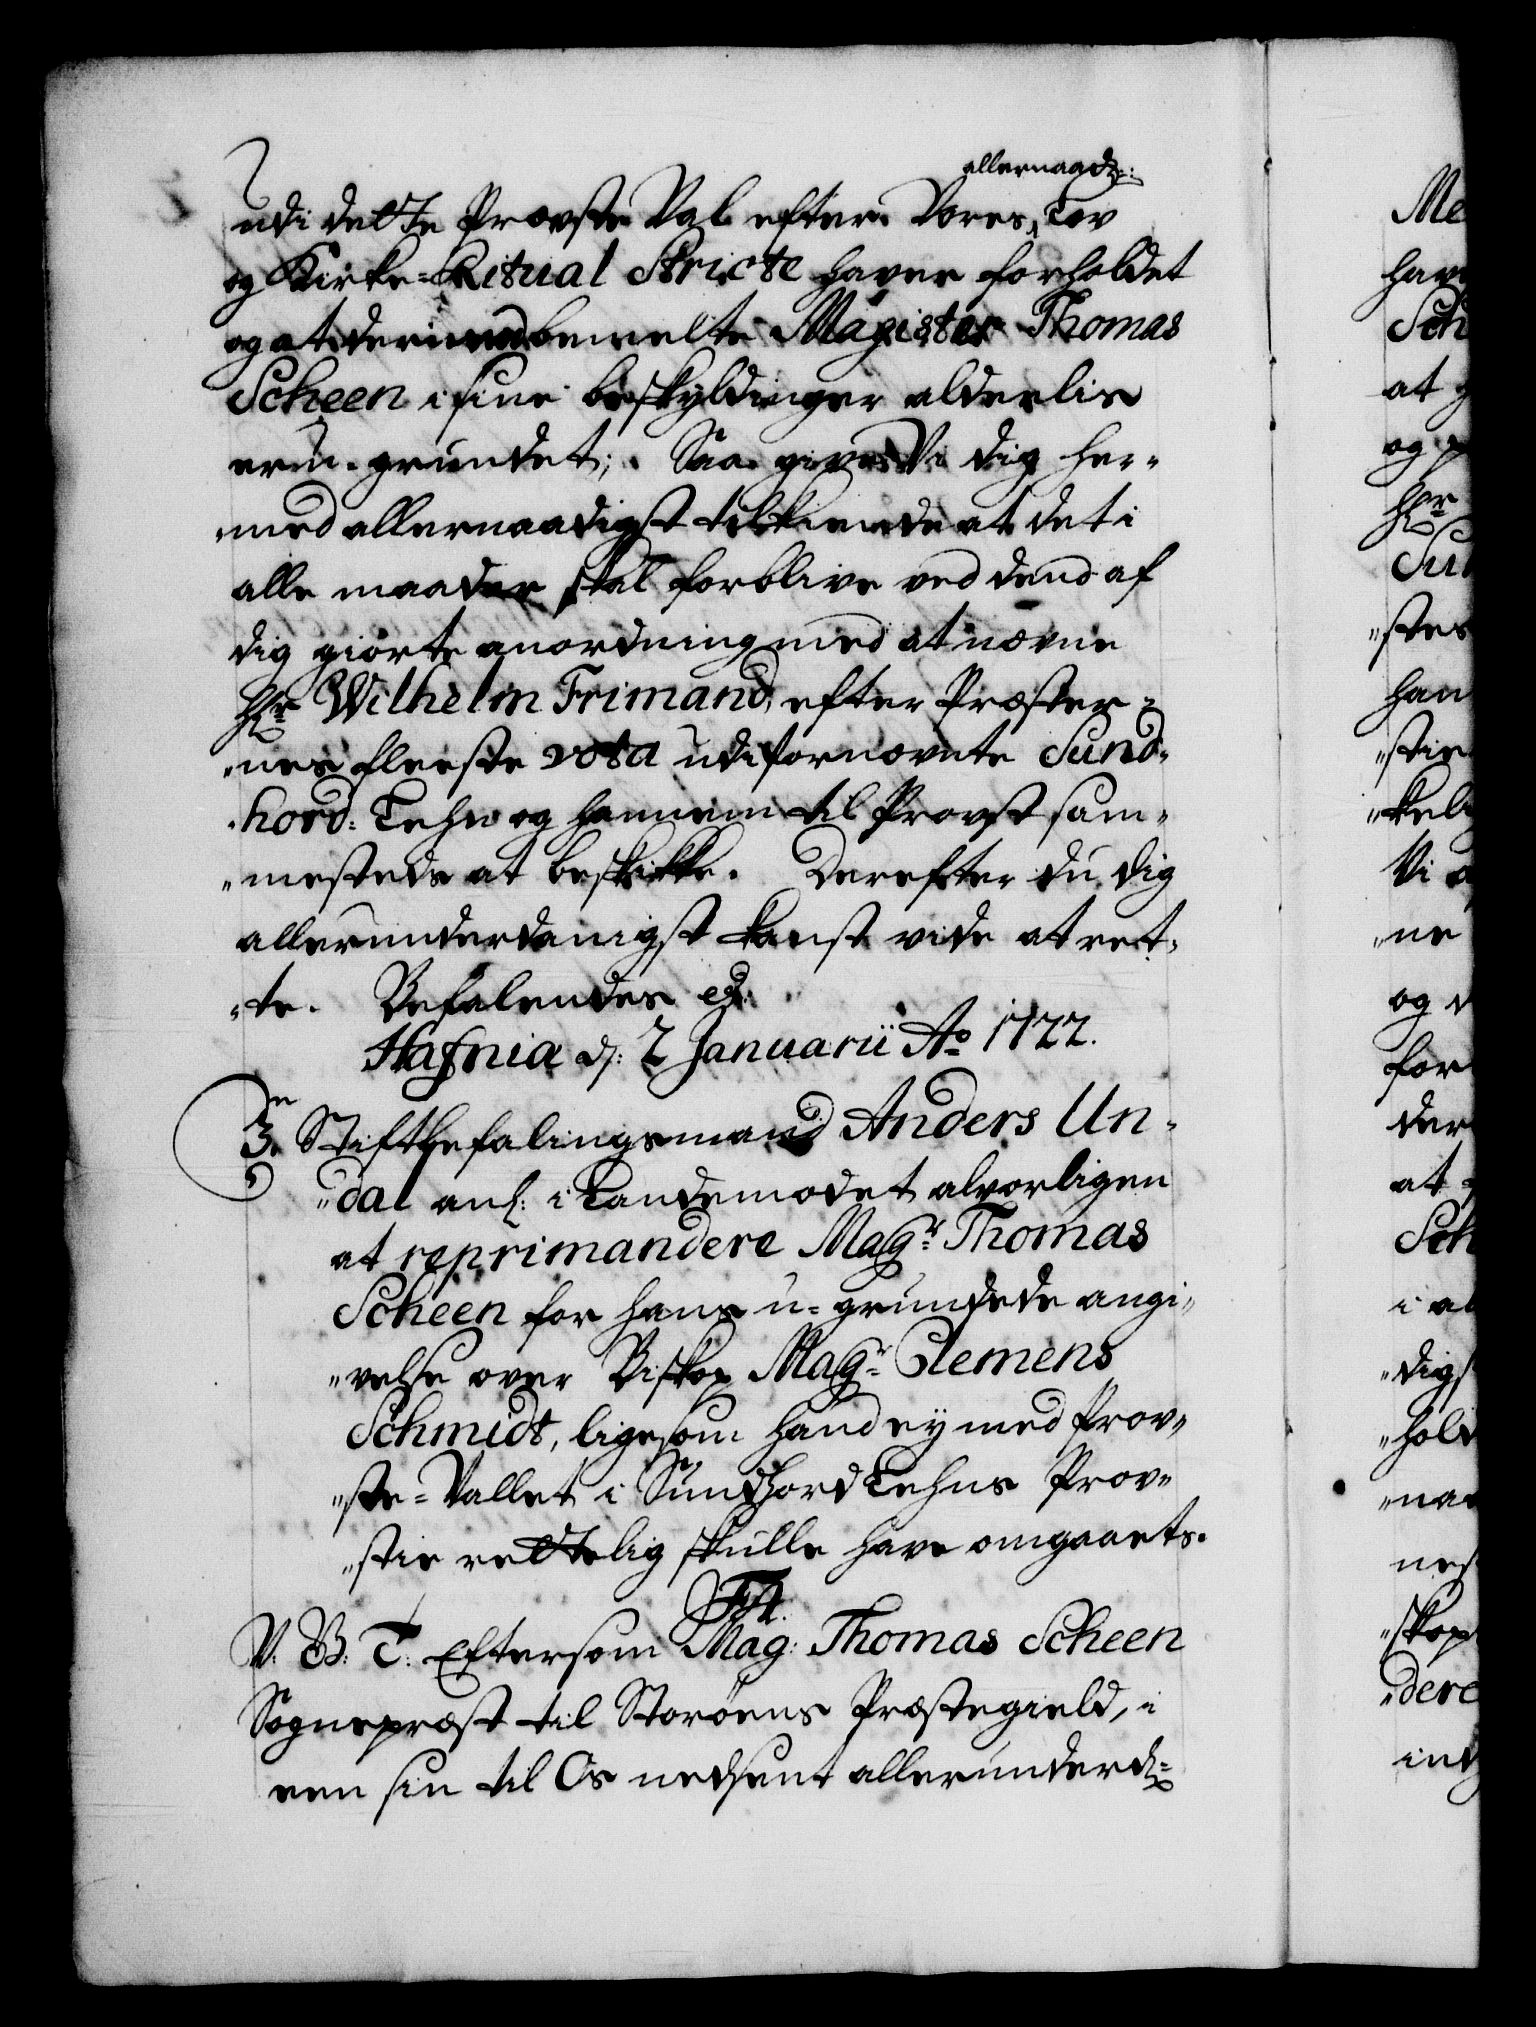 allernaadg:
udi dette Provste Val efter Vores Lov
og Kirke-Ritual Stricte haver forholdet
og at derimod bemelte Magister Thomas
Scheen i sine beskyldinger alderlis
er u-grundet; Saa give Vi dig her-
"med allernaadigst tilkiende at det i
alle maader skal forblive ved dend af
dig giorte anordning med at nævne
Hr Wilhelm Frimand, efter Præster-
"nes fleeste vota udi fornævnte Sund-
"hord-Lehn og hannem til Provst sam-
"mesteds at beskikke. Derefter du dig
allerunderdanigst kanst vide at ret-
"te. Befalendes etc:
Hafnia d: 2 Januarii Ao 1722.
3. Stiftbefalingsmand Anders Un-
"dal anl: i Landemodet alvorligen
at reprimandere Magr Thomas
Scheen for hans u-grundede angi-
"velse over Biskop Magr Clemens
Schmidt, ligesom hand ey med Prov-
"ste-Vallet i Sundhord Lehns Prov-
"stie rettelig skulle have omgaaets.
F 4.
V. G: T: Eftersom Mag: Thomas Scheen
Sognepræst til Storøens Præstegield, i
een sin til Os nedsent allerunderd:
Me
hav
Sch
at
og
Hr
Sun
"stes
han
"stie
"kel
Vi
"ne
og
for
der
at
Sch
i al
"digs
"hold
"na
nes
"skop
"dere
ind